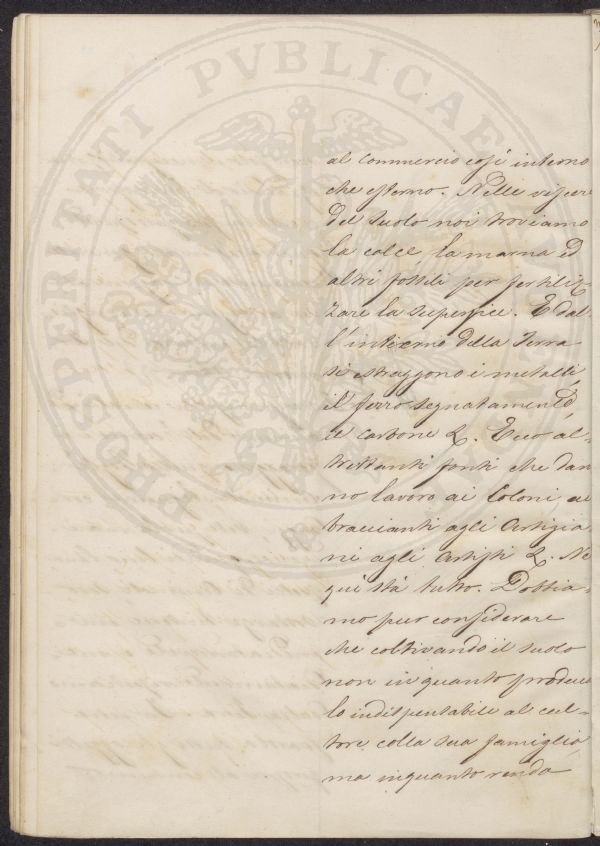 PROSPERITATI PVBLICAE
al Commercio così interno
che esterno. Nelle viscere
del suolo noi troviamo
la calce, la marna ed
altri fossili per fertiliz
zare la superficie. E dal-
l'interno della Terra
si estraggono i metalli,
il ferro segnatamente,
il carbone &. Ecco al-
trettanti fonti che dan
no lavoro ai Coloni ai
braccianti agli Artigia
ni agli Artisti &. Ne
quì stà tutto. Dobbia-
mo pur considerare
che coltivando il suolo
non in quanto produce
lo indispensabile al cul-
tore colla sua famiglia,
ma inquanto renda